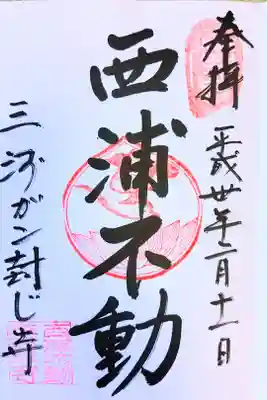 奉拝
平成丗年二月十一日
西浦不動
三河ガン封じ寺